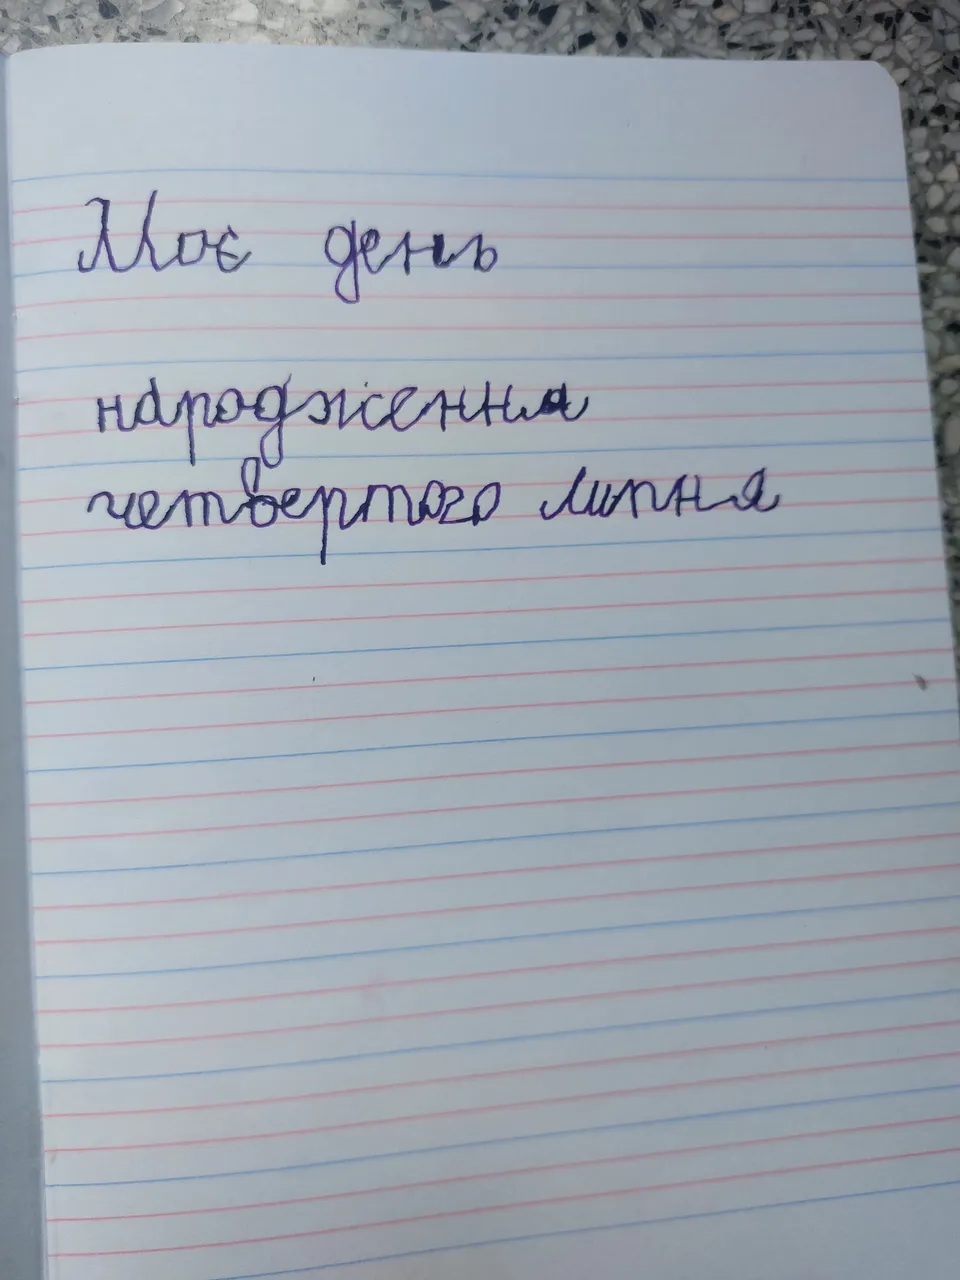 Моє день
народження
четвертого липня